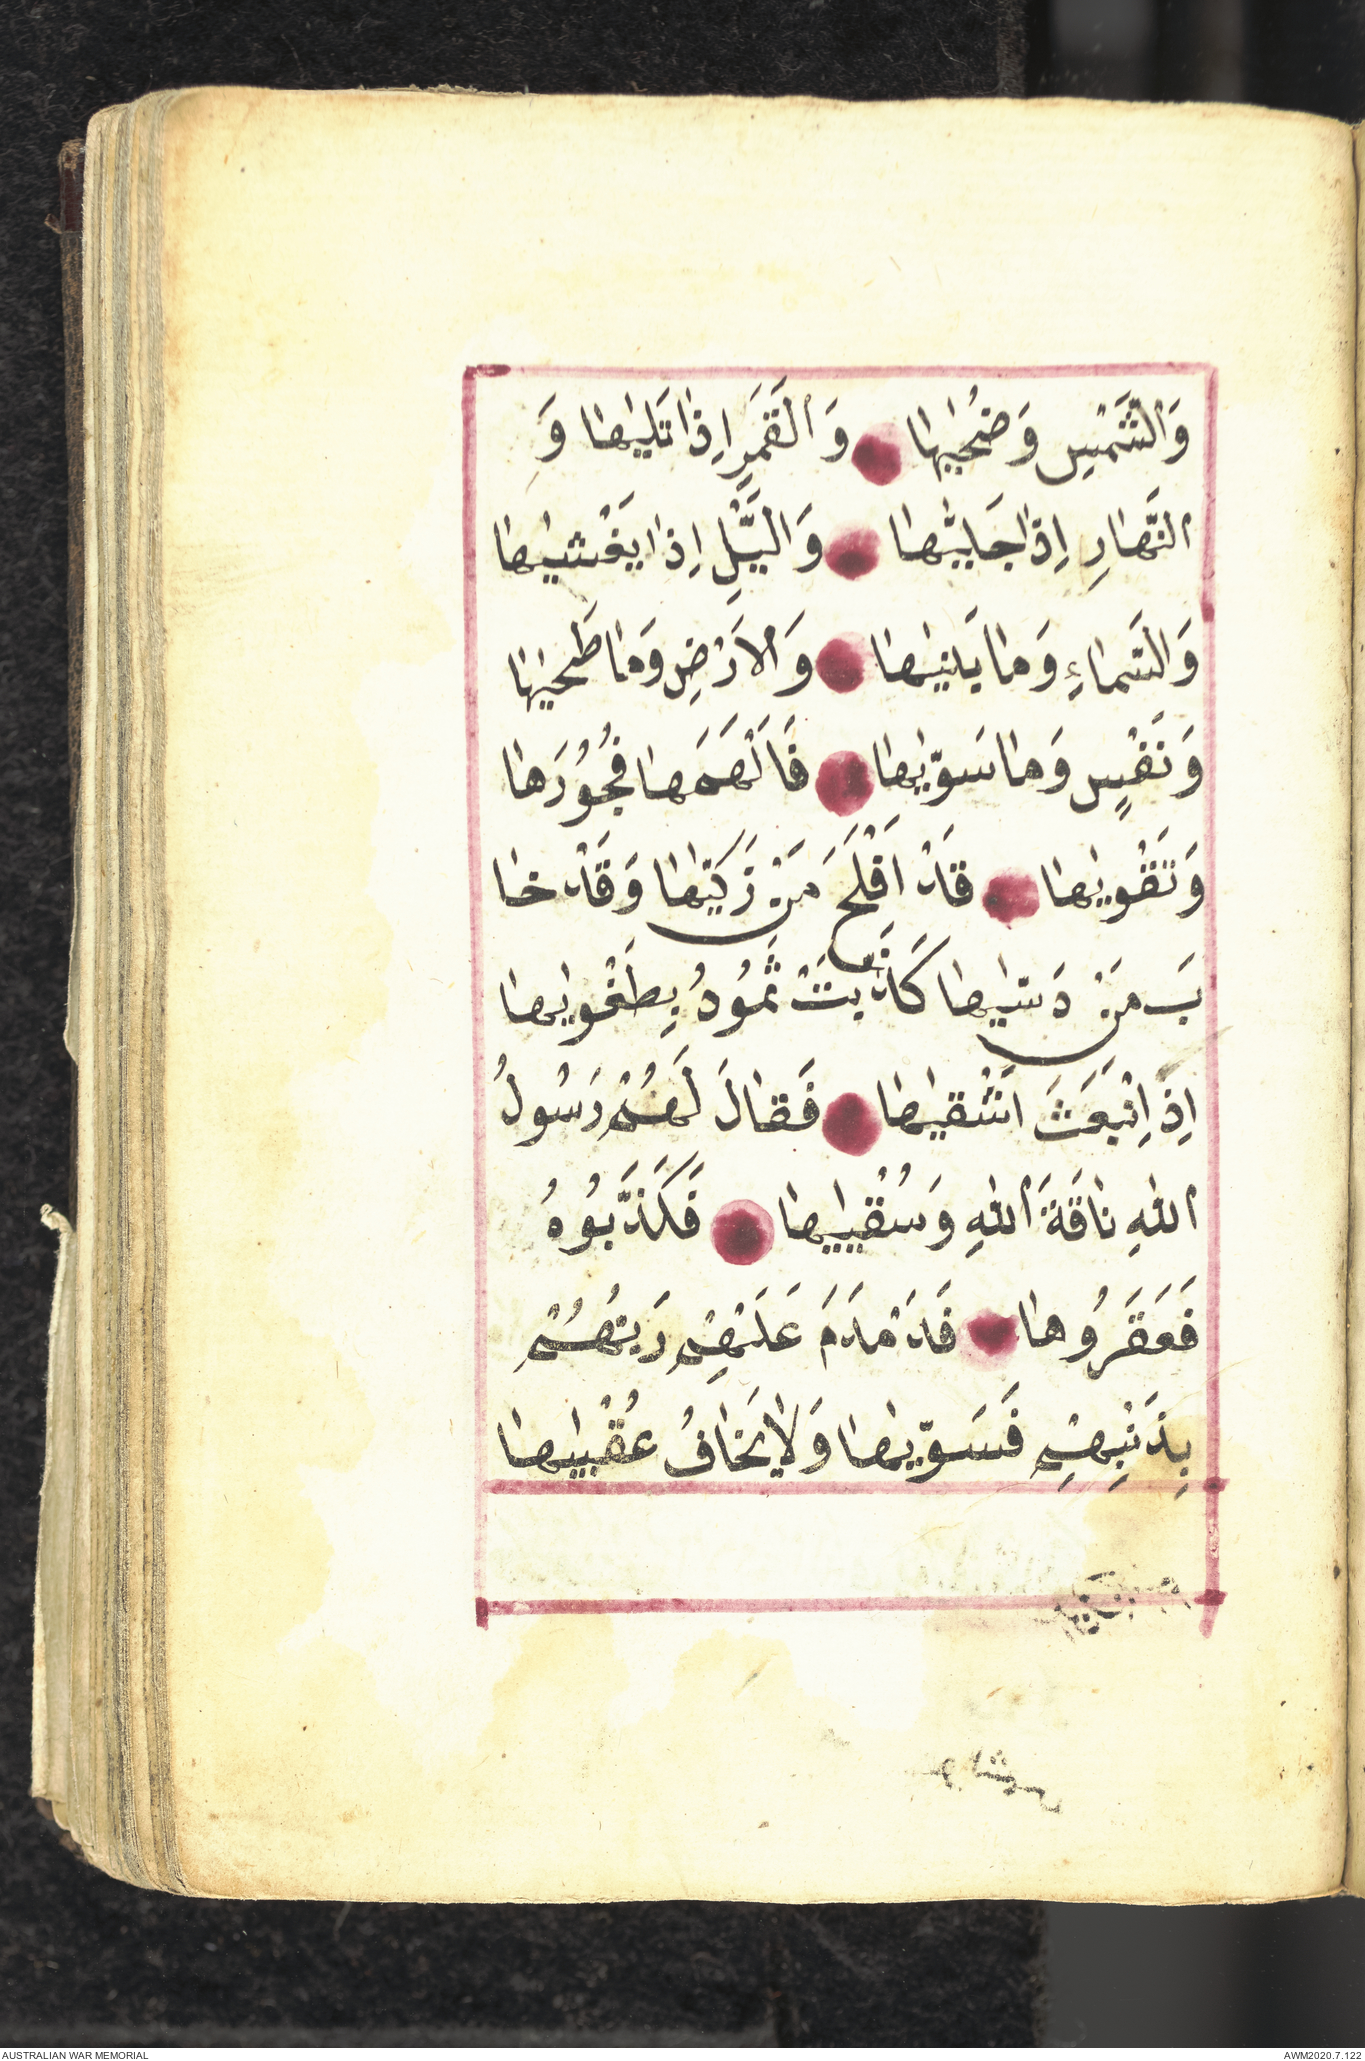 وَالشَّمْسِ وَضُحٰيهٰا وَالْقَمَرِ اِذٰا تَلٰيهٰا وَ
النَّهٰارِ اِذٰا جَلّٰيهٰا وَالَّيْلِ اِذٰا يَغْشٰيهٰا
وَالسَّمٰاءِ وَمٰا بَنٰيهٰا وَالْاَرْضِ وَمٰا طَحٰيهٰا
وَنَفْسٍ وَمٰا سَوّٰيهٰا فَاَلْهَمَهٰا فُجُورَهٰا
وَتَقْوٰيهٰا قَدْ اَفْلَحَ مَنْ زَكّٰيهٰا وَقَدْ خٰا
بَ مَنْ دَسّٰيهٰا كَذَّبَتْ ثَمُودُ بِطَغْوٰيهٰا
اِذِ انْبَعَثَ اَشْقٰيهٰا فَقٰالَ لَهُمْ رَسُولُ
اللّٰهِ نٰاقَةَ اللّٰهِ وَسُقْيٰيهٰا فَكَذَّبُوهُ
فَعَقَرُوهٰا فَدَمْدَمَ عَلَيْهِمْ رَبُّهُمْ
بِذَنْبِهِمْ فَسَوّٰيهٰا وَلٰا يَخٰافُ عُقْبٰيهٰا
والشمس
AUSTRALIAN WAR MEMORIAL
AWM2020.7.122